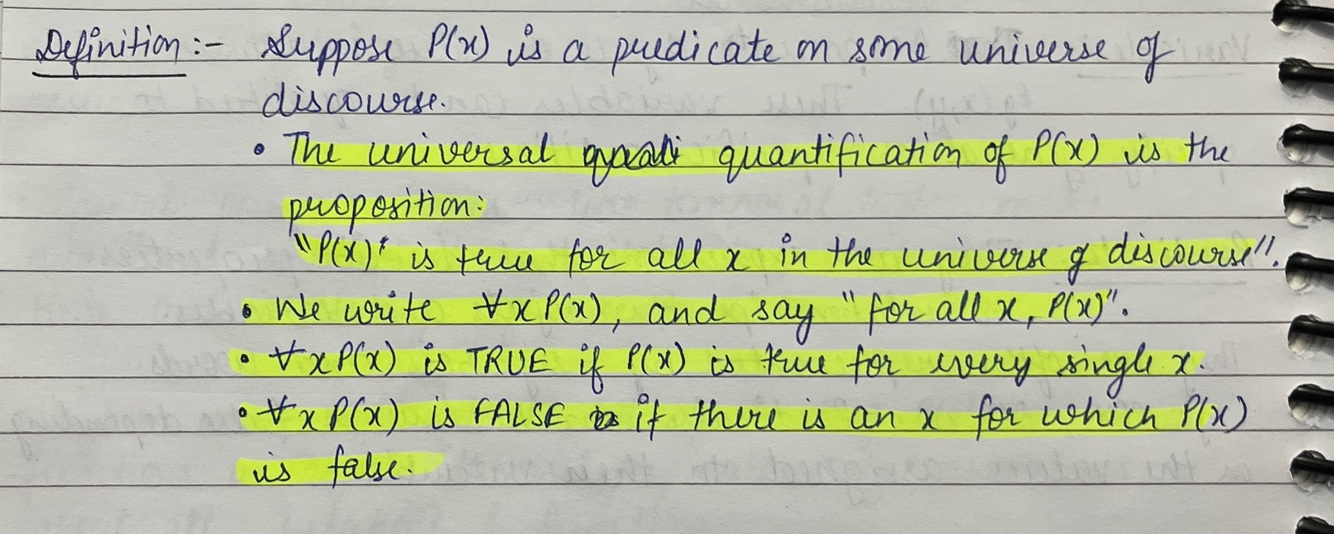 Definition :- Suppose P(x) is a predicate on some universe of
discourse.
• The universal quantification of P(x) is the
proposition:
"P(x)" is true for all x in the universe of discourse".
• We write ∀x P(x), and say "for all x, P(x)".
• ∀x P(x) is TRUE if P(x) is true for every single x.
• ∀x P(x) is FALSE if there is an x for which P(x)
is false.